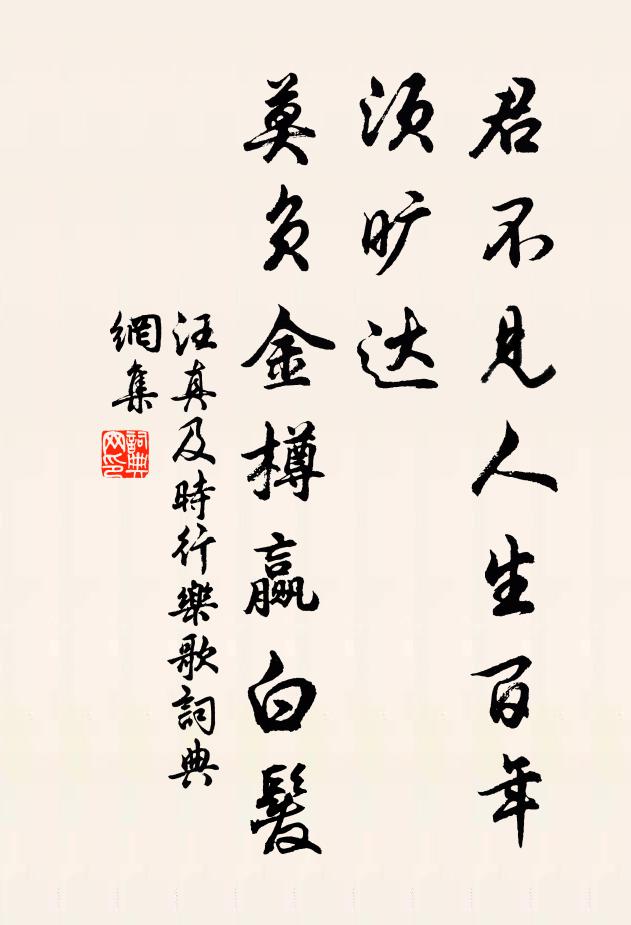 君不见人生百年
须旷达
莫负金樽赢白髮
汪真及時行樂歌詞典
網集
詞典
网印